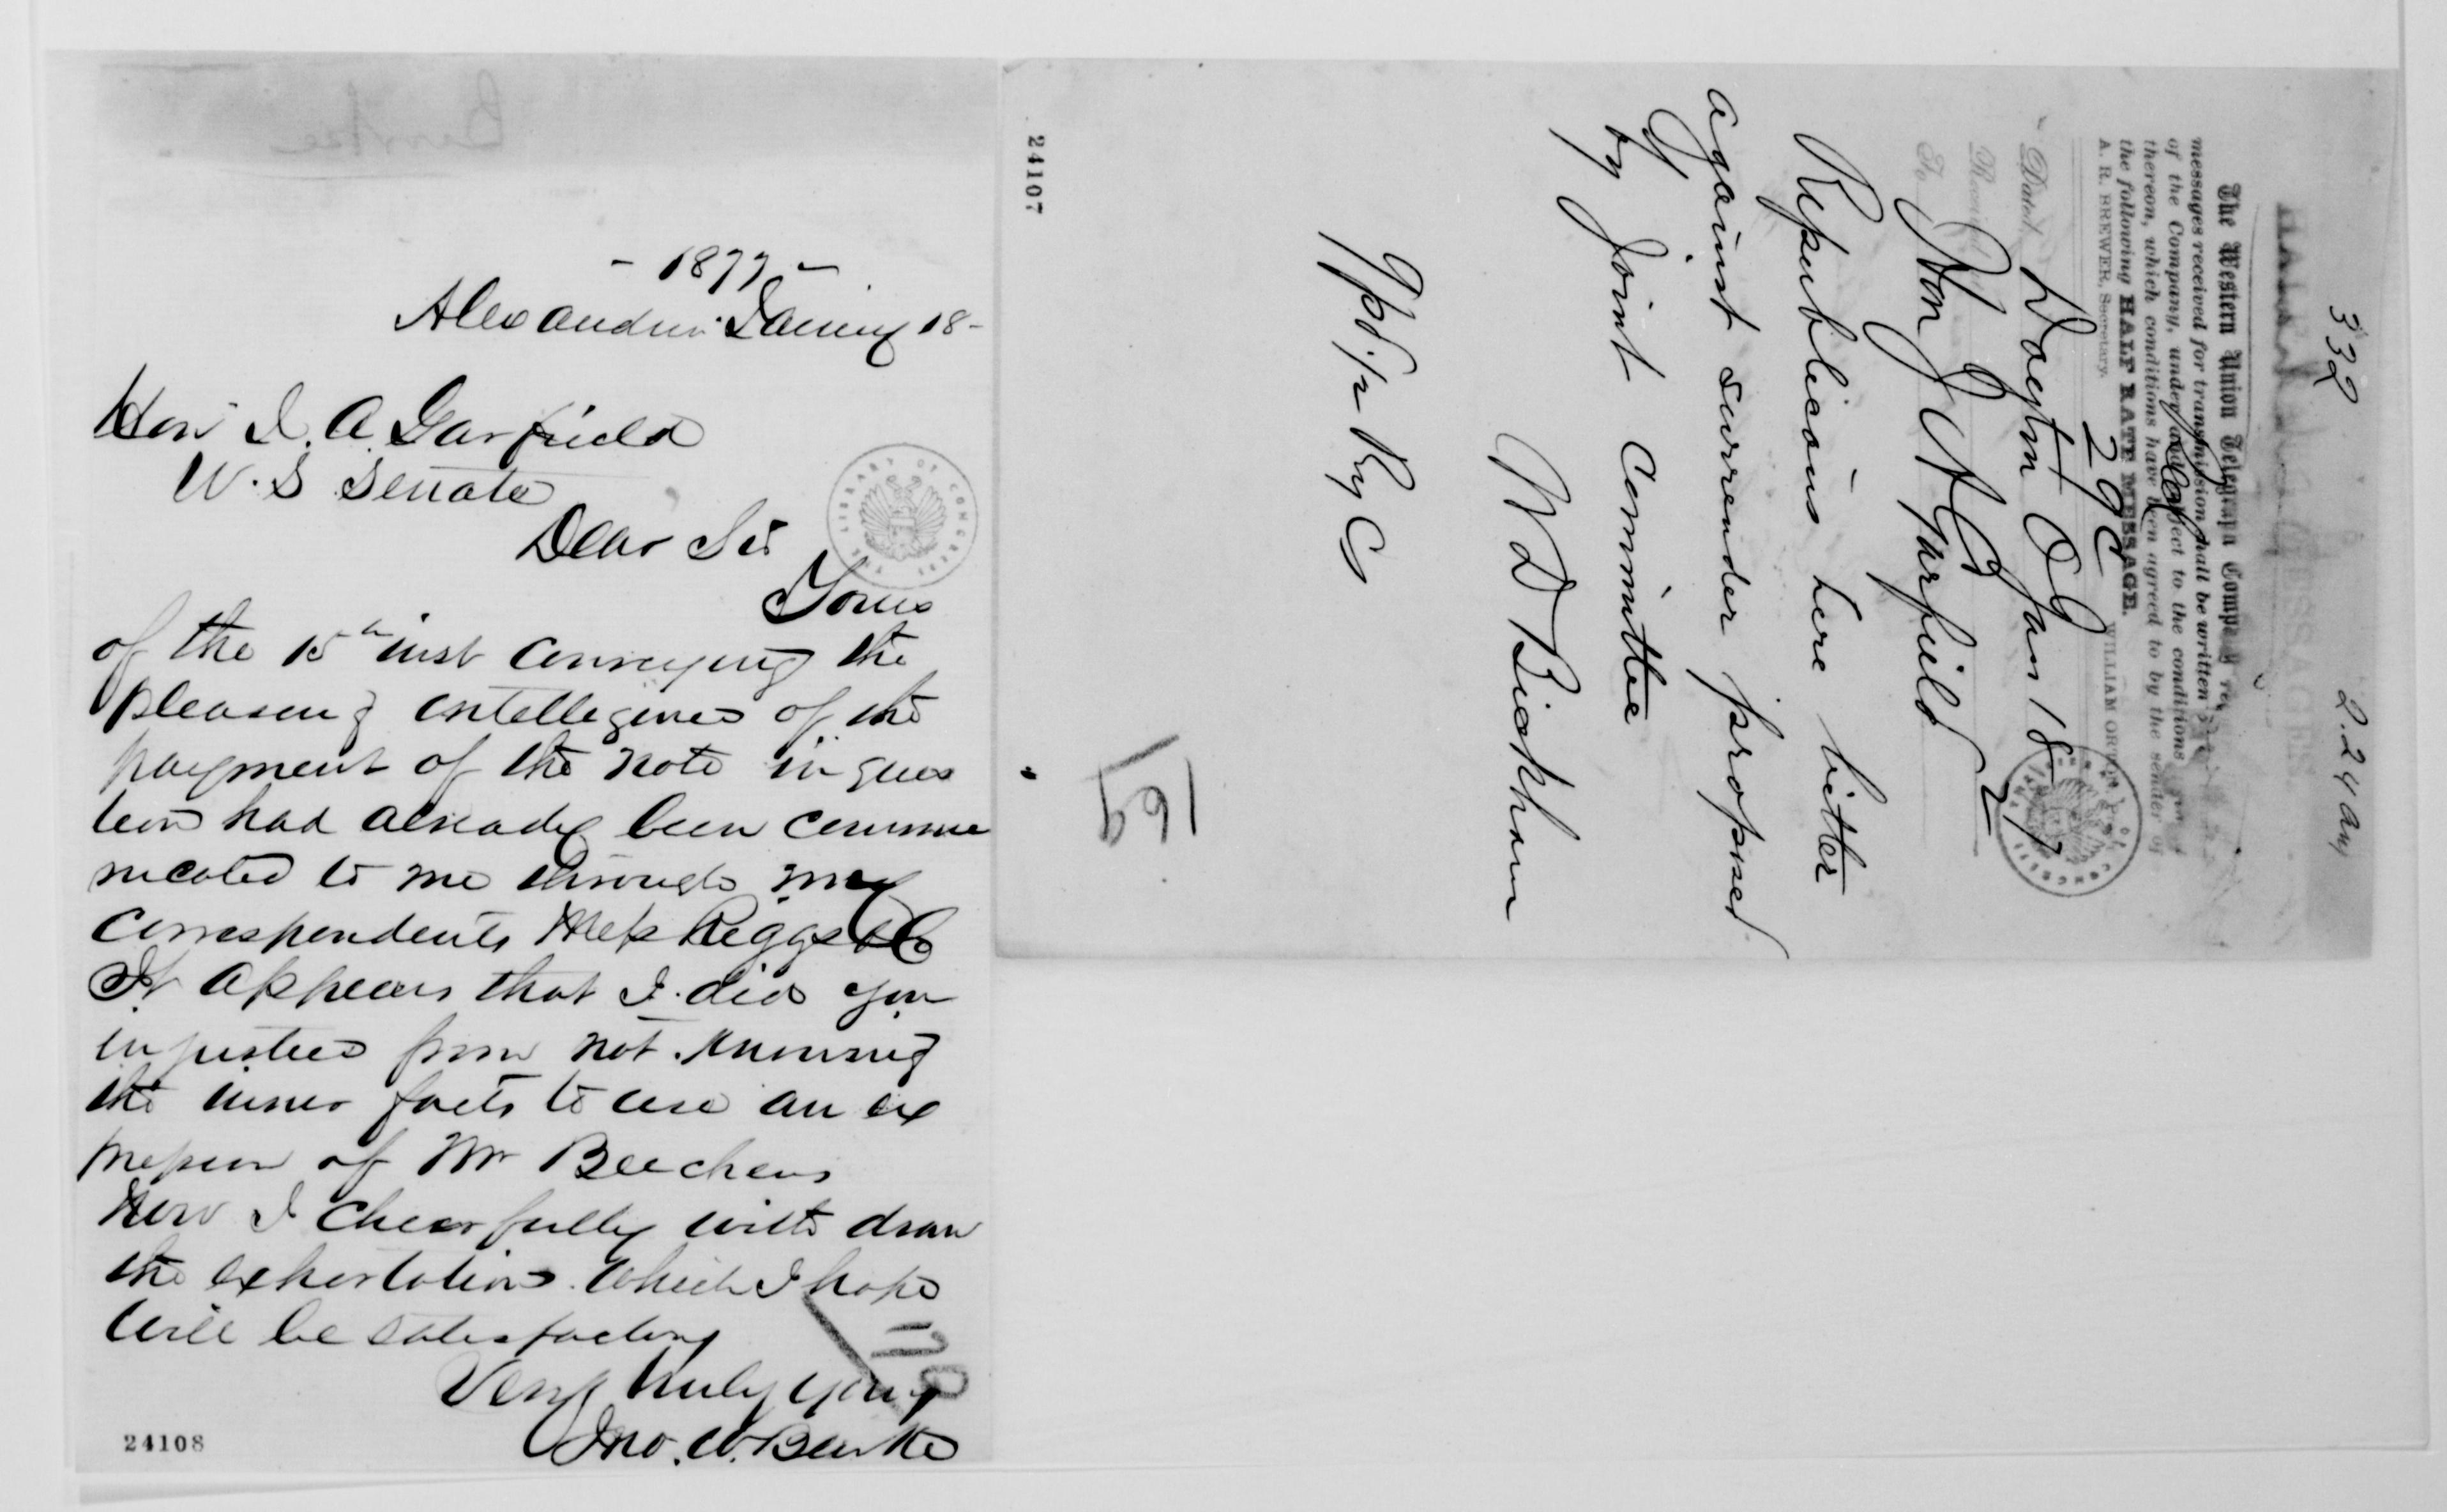 - 1877 -
Alexandria January 18-
Hon J. A. Garfield
U.S Senate
Dear Sir
Yours
of the 15th inst conveying the
pleasing intelligence of the
payment of the note in ques
tion had already been commu
nicated to me through my
correspondents Mess Riggs & Co
It appears that I did you
injustice from not knowing
the inner facts to use an ex
pression of Mr Beechers
Now I cheerfully with draw
the exhortation which I hope
will be satisfactory
Very truly yours
Jno. W. Burke
170
24108
332 2.24 am
HALF RATE MESSAGES
The Western Union Telegraph Company
messages received for transmission shall be written
of the Company, under and subject to the conditions
thereon, which conditions have been agreed to by the sender of
the following HALF RATE MESSAGE.
A. R. BREWER, Secretary. WILLIAM ORTON
29 C
Dated Dayton O Jan 18 77
Received
To Hon J A Garfield
Republicans here bitter
against surrender proposed
by Joint Committee
W D Bickham
9 pd 1/2 Ry C
24107
LIBRARY OF CONGRESS